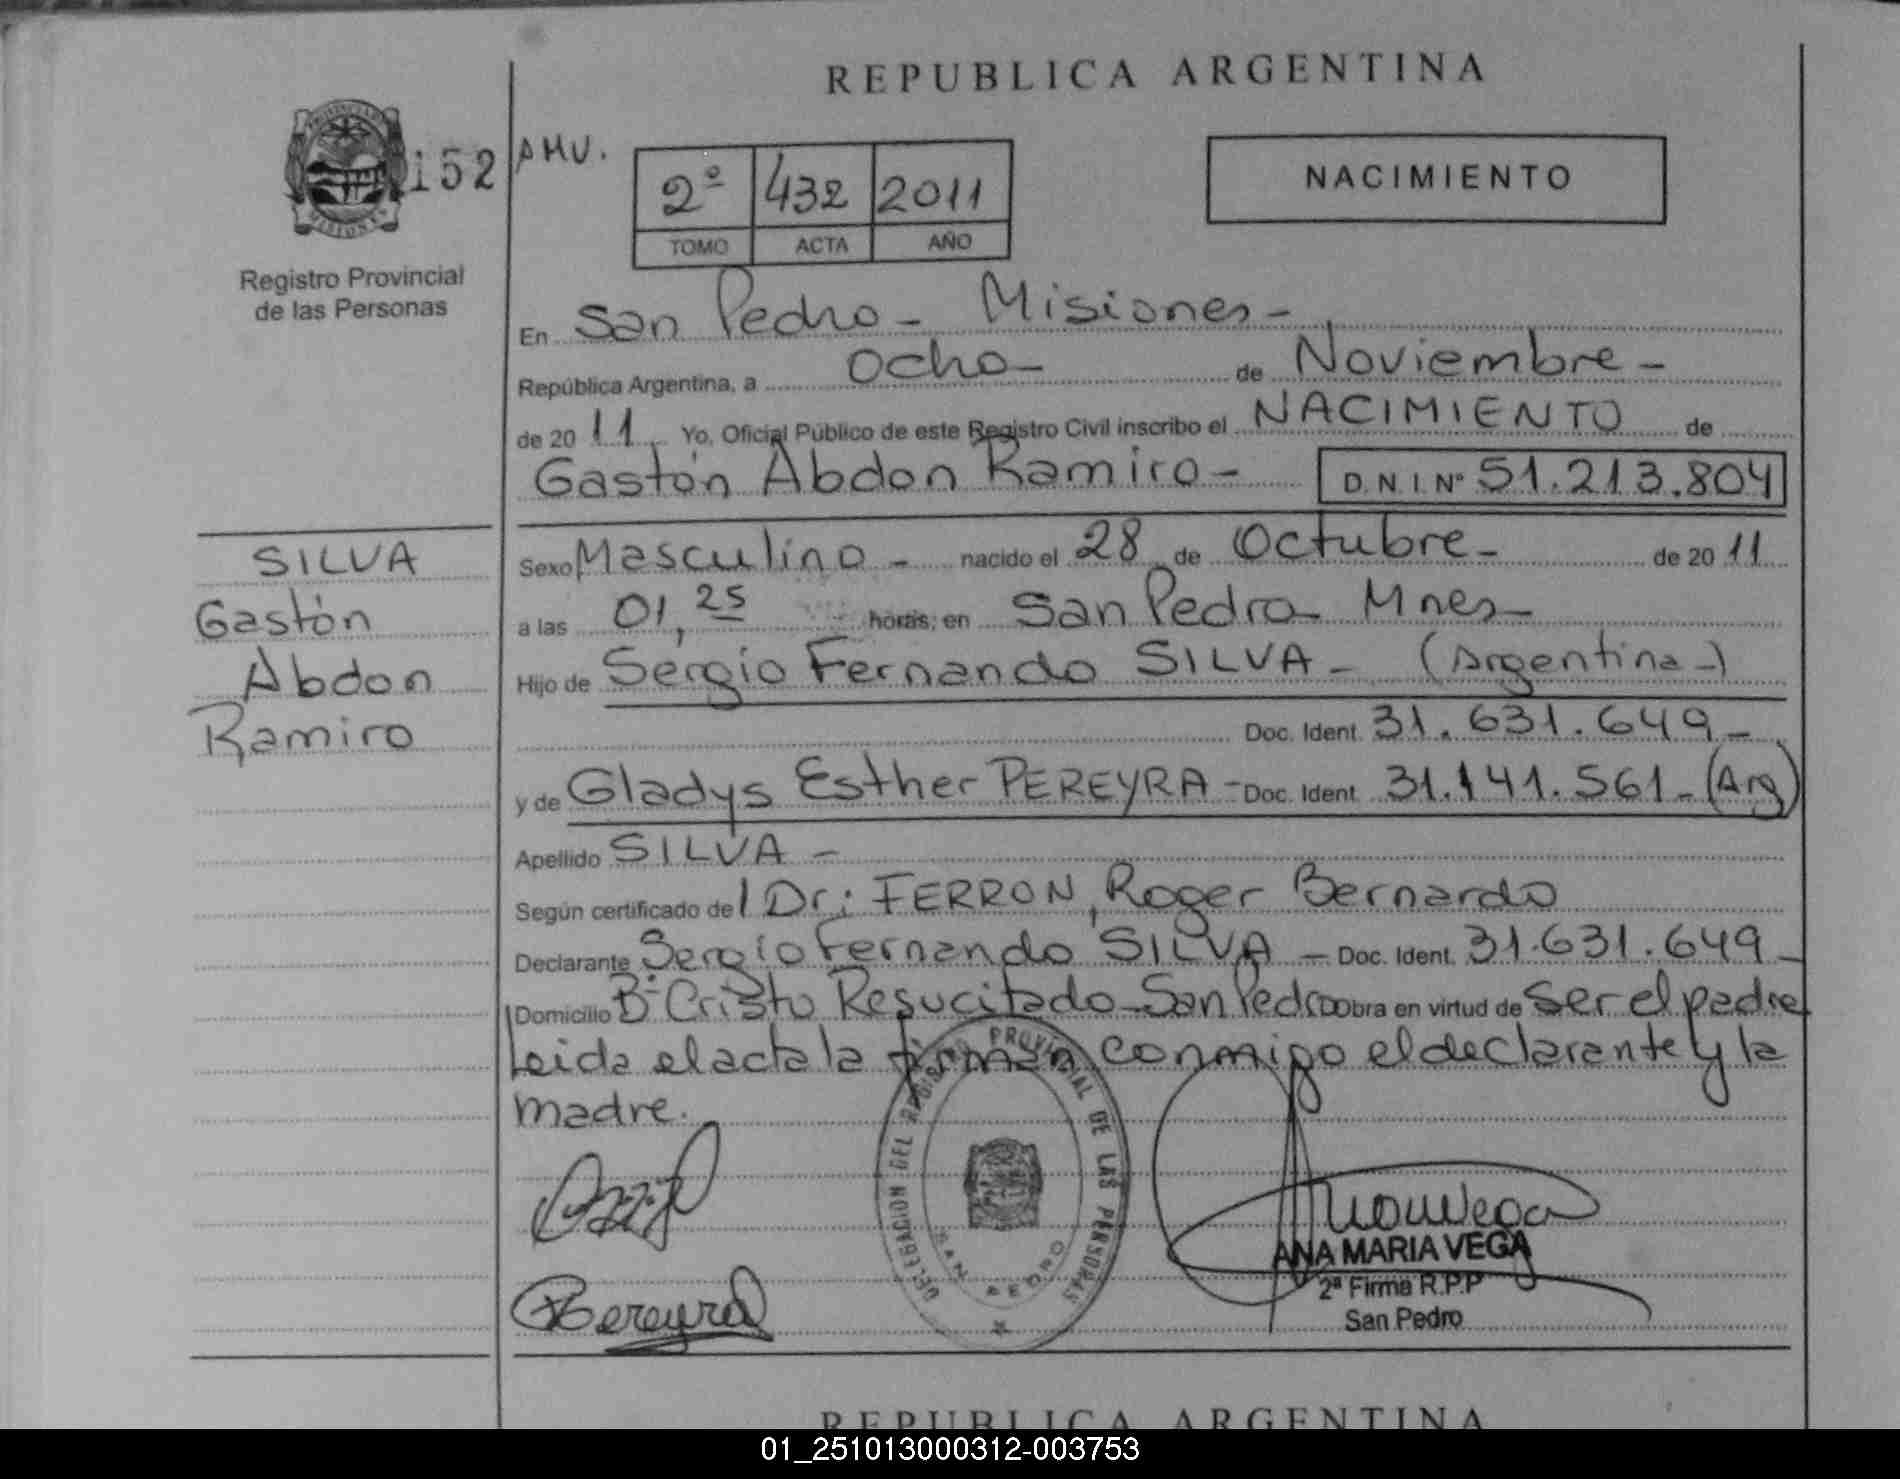 REPUBLICA ARGENTINA
PROVINCIA DE
MISIONES
152
AMV.
2º 432 2011
TOMO ACTA AÑO
NACIMIENTO
Registro Provincial
de las Personas
En San Pedro - Misiones -
República Argentina, a Ocho - de Noviembre -
de 20 11 Yo, Oficial Público de este Registro Civil inscribo el NACIMIENTO de
Gastón Abdon Ramiro - D.N.I. Nº 51.213.804
SILVA
Gastón
Abdon
Ramiro
Sexo Masculino - nacido el 28 de Octubre - de 20 11
a las 01,25 horas, en San Pedro - Mnes -
Hijo de Sergio Fernando SILVA - (Argentina -)
Doc. Ident. 31.631.649 -
y de Gladys Esther PEREYRA - Doc. Ident. 31.141.561 - (Arg)
Apellido SILVA -
Según certificado del Dr: FERRON, Roger Bernardo
Declarante Sergio Fernando SILVA - Doc. Ident. 31.631.649 -
Domicilio Bº Cristo Resucitado - San Pedro Obra en virtud de ser el padre
Leida el acta la firman conmigo el declarante y la
madre.
DELEGACION DEL REGISTRO PROVINCIAL DE LAS PERSONAS
SAN PEDRO
Pereyra
ANA MARIA VEGA
2ª Firma R.P.P
San Pedro
REPUBLICA ARGENTINA
01_251013000312-003753